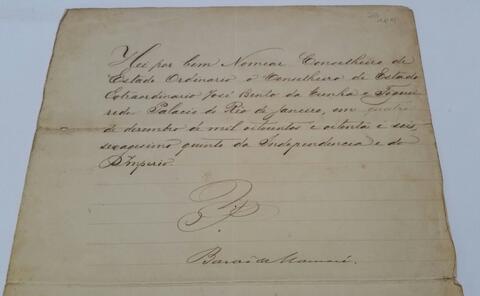 Hei por bem Nomear Conselheiro de
Estado Ordinario o Conselheiro de Estado
Extraordinario José Bento da Cunha e Figuei
redo Palacio do Rio de Janeiro, em quatro
de dezembro de mil oitocentos e oitenta e seis,
sexagesimo quinto da Independencia e do
Imperio.
Barão de Mamoré.